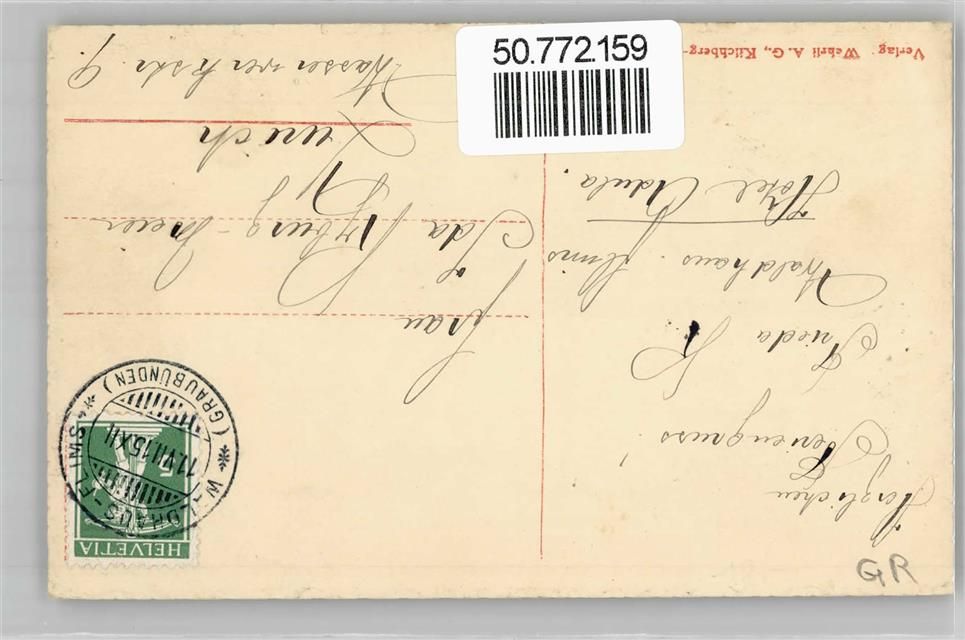 50.772.159
Verlag Wehrli A. G., Kilchberg-
Herzlichen
Feriengruss
Frieda
Waldhaus Flims
Hotel Adula.
Frau
Ida
Zürich
Wasserwerkstr. 9.
HELVETIA
WALDHAUS-FLIMS
11.VII.15.XII
(GRAUBÜNDEN)
GR